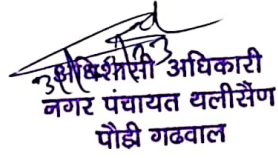 अधिशासी अधिकारी
नगर पंचायत थलीसैंण
पौड़ी गढवाल